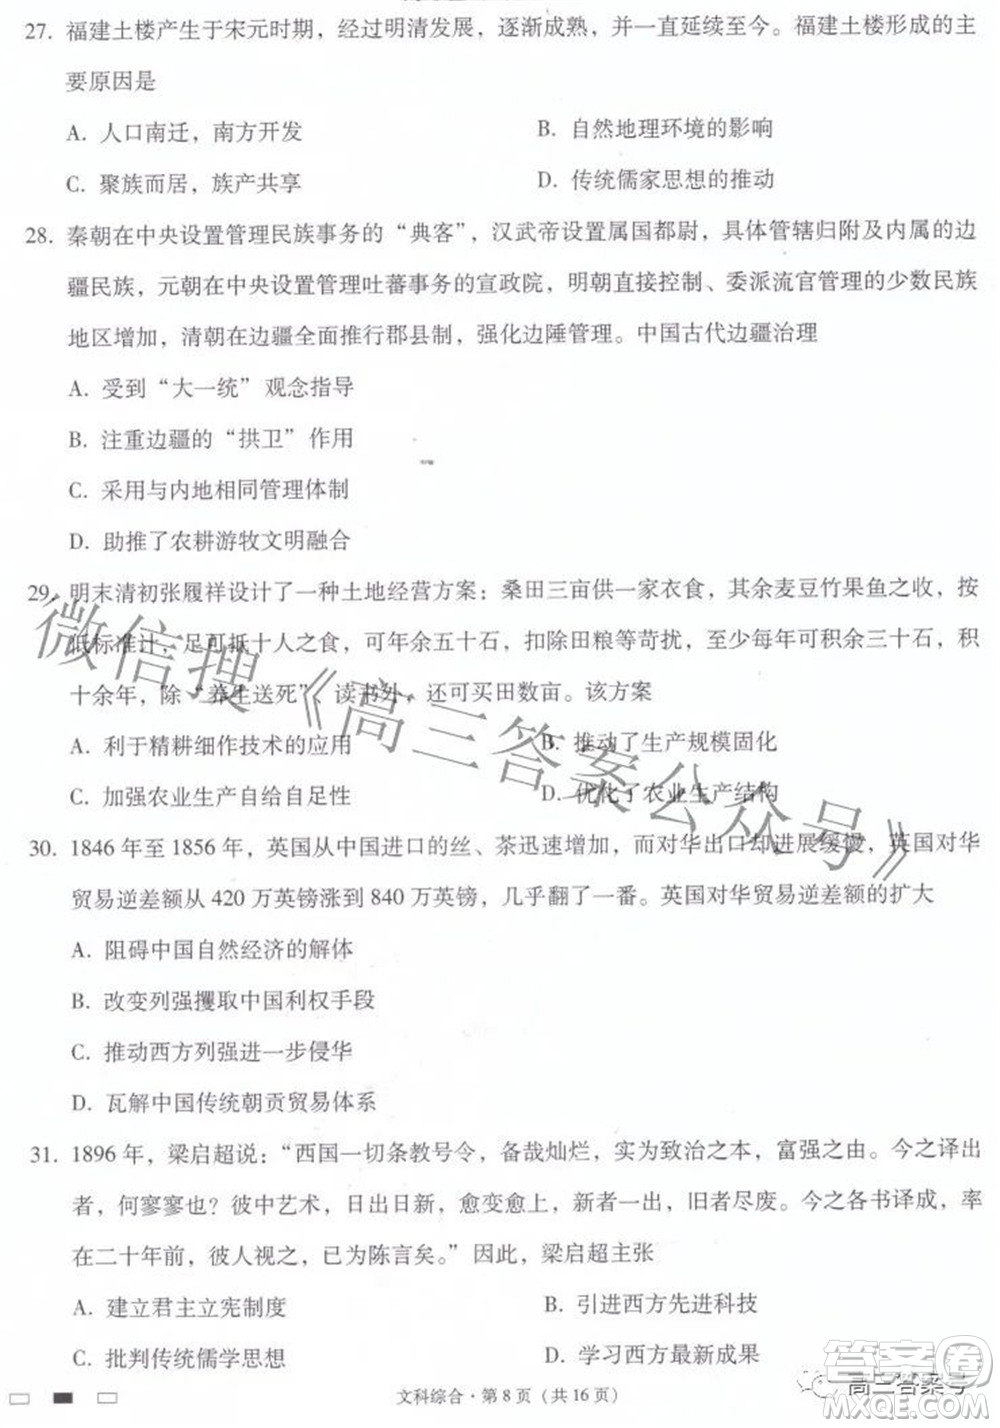 27. 福建土楼产生于宋元时期，经过明清发展，逐渐成熟，并一直延续至今。福建土楼形成的主
要原因是
A. 人口南迁，南方开发
B. 自然地理环境的影响
C. 聚族而居，族产共享
D. 传统儒家思想的推动
28. 秦朝在中央设置管理民族事务的“典客”，汉武帝设置属国都尉，具体管辖归附及内属的边
疆民族，元朝在中央设置管理吐蕃事务的宣政院，明朝直接控制、委派流官管理的少数民族
地区增加，清朝在边疆全面推行郡县制，强化边陲管理。中国古代边疆治理
A. 受到“大一统”观念指导
B. 注重边疆的“拱卫”作用
C. 采用与内地相同管理体制
D. 助推了农耕游牧文明融合
29. 明末清初张履祥设计了一种土地经营方案：桑田三亩供一家衣食，其余麦豆竹果鱼之收，按
低标准计，足可抵十人之食，可年余五十石，扣除田粮等苛扰，至少每年可积余三十石，积
十余年，除“养生送死”、读书外，还可买田数亩。该方案
A. 利于精耕细作技术的应用
B. 推动了生产规模固化
C. 加强农业生产自给自足性
D. 优化了农业生产结构
30. 1846 年至 1856 年，英国从中国进口的丝、茶迅速增加，而对华出口却进展缓慢，英国对华
贸易逆差额从 420 万英镑涨到 840 万英镑，几乎翻了一番。英国对华贸易逆差额的扩大
A. 阻碍中国自然经济的解体
B. 改变列强攫取中国利权手段
C. 推动西方列强进一步侵华
D. 瓦解中国传统朝贡贸易体系
31. 1896 年，梁启超说：“西国一切条教号令，备哉灿烂，实为致治之本，富强之由。今之译出
者，何寥寥也？彼中艺术，日出日新，愈变愈上，新者一出，旧者尽废。今之各书译成，率
在二十年前，彼人视之，已为陈言矣。”因此，梁启超主张
A. 建立君主立宪制度
B. 引进西方先进科技
C. 批判传统儒学思想
D. 学习西方最新成果
文科综合·第 8 页（共 16 页）
微信搜《高三答案公众号》
高三答案号
答案圈
MXQE.COM